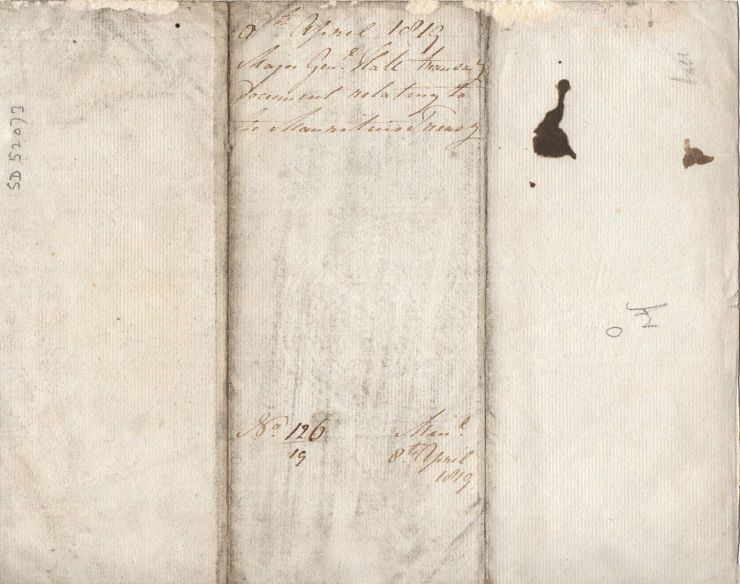 April 1819
Major Genl. Hall transmg
Document relating to
the Mauritius Treasy
No. 126
19
Mind.
8th April
1819.
SD 52073